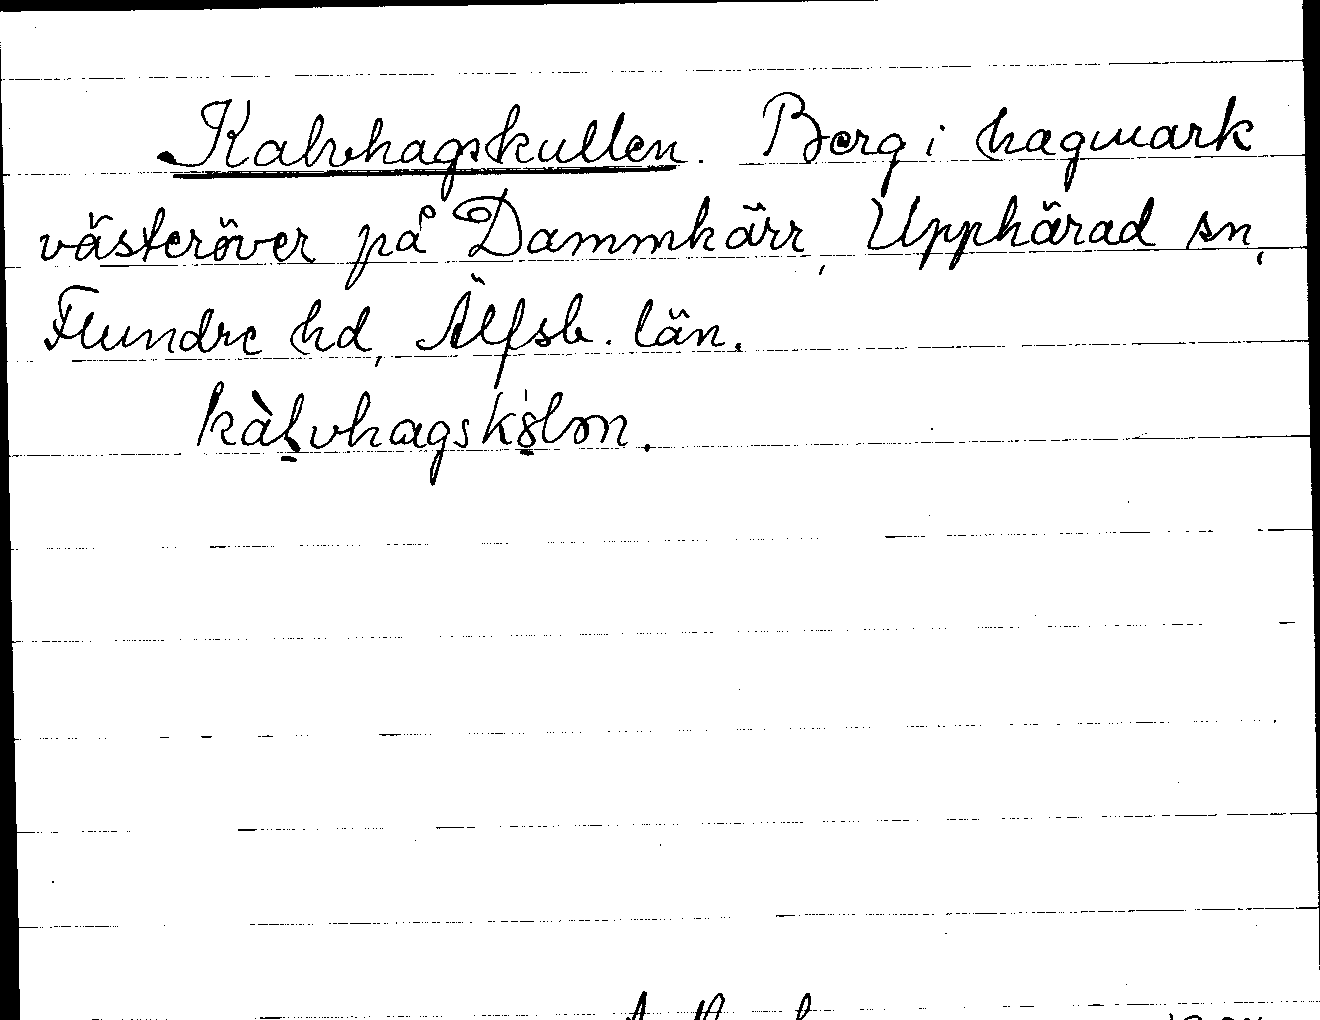 Kalvhagskullen. Berg i hagmark
västeröver på Dammkärr, Upphärad sn,
Flundre hd, Älfsb. län.
kàlvhagskölon.